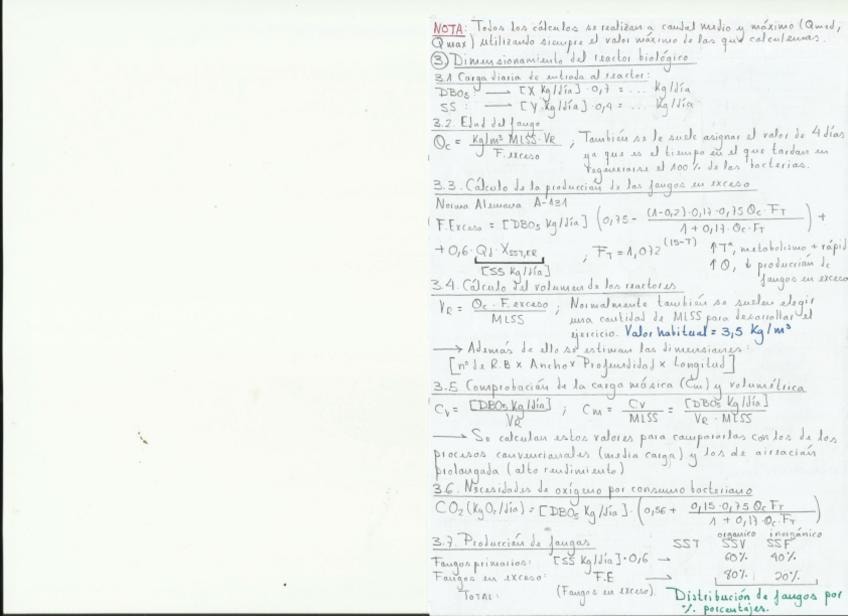 NOTA: Todos los cálculos se realizan a caudal medio y máximo (Qmed,
Qmax) utilizando siempre el valor máximo de los que calculemos.
③ Dimensionamiento del reactor biológico
3.1 Carga diaria de entrada al reactor:
DBO5: → [X Kg/día] · 0,7 = ... Kg/día
SS: → [Y Kg/día] · 0,4 = ... Kg/día
3.2. Edad del fango
Θc = Kg/m³ MLSS · VR / F. exceso ; También se le suele asignar el valor de 4 días
ya que es el tiempo en el que tardan en
regenerarse el 100% de las bacterias.
3.3. Cálculo de la producción de los fangos en exceso
Norma Alemana A-131
F.Exceso = [DBO5 Kg/día] (0,75 - (1-0,2)·0,17·0,75 Θc·FT / 1 + 0,17·Θc·FT) +
+ 0,6 · Qd · XSST,ER [SS Kg/día] ; FT = 1,072^(15-T) ↑Tª, metabolismo + rápid
↑Θ, ↓ producción de
fangos en exceso
3.4. Cálculo del volumen de los reactores
VR = Θc · F. exceso / MLSS ; Normalmente también se suelen elegir
una cantidad de MLSS para desarrollar el
ejercicio. Valor habitual = 3,5 Kg/m³
→ Además de ello se estiman las dimensiones:
[nº de R.B x Ancho x Profundidad x Longitud]
3.5 Comprobación de la carga másica (Cm) y volumétrica
Cv = [DBO5 Kg/día] / VR ; Cm = Cv / MLSS = [DBO5 Kg/día] / VR · MLSS
→ Se calculan estos valores para compararlos con los de los
procesos convencionales (media carga) y los de aireación
prolongada (alto rendimiento)
3.6. Necesidades de oxígeno por consumo bacteriano
CO2 (KgO2/día) = [DBO5 Kg/día] · (0,56 + 0,15·0,75 Θc FT / 1 + 0,17·Θc·FT)
orgánico inorgánico
3.7. Producción de fangos SST SSV SSF
Fangos primarios: [SS Kg/día] · 0,6 → 60% 40%
Fangos en exceso: F.E → 80% 20%
TOTAL: (Fangos en exceso). Distribución de fangos por
% porcentajes.